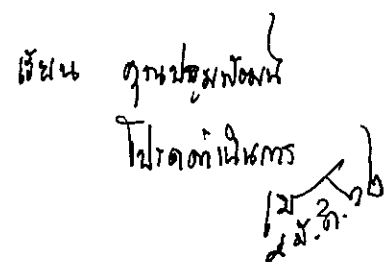 เรียน คุณปฐมพัฒน์
โปรดดำเนินการ